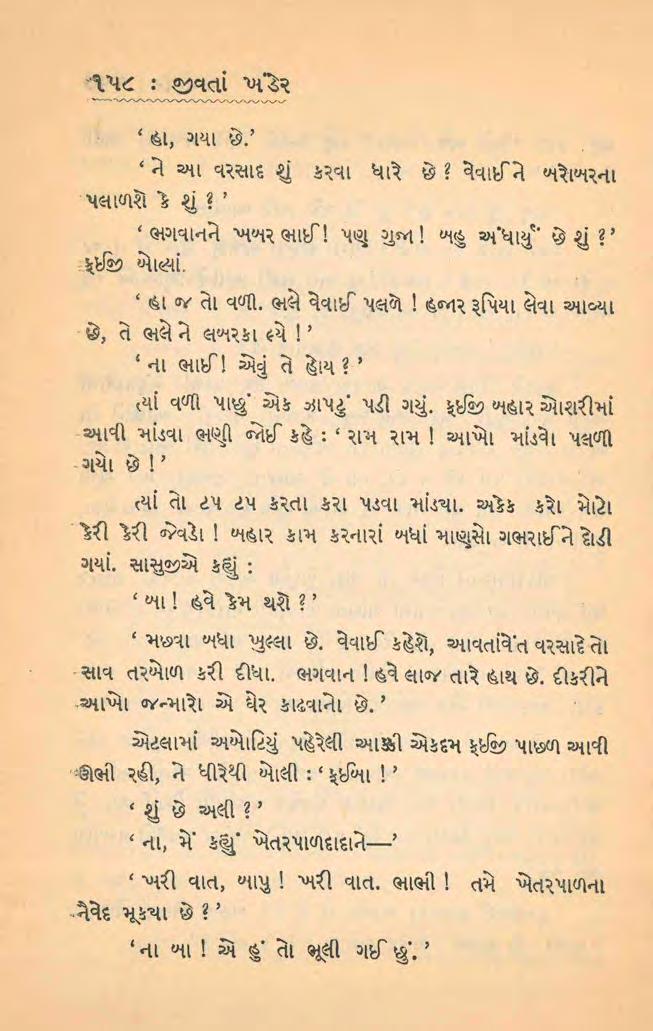 ૧૫૮ : જીવતાં ખંડેર
‘ હા, ગયા છે.’
‘ ને આ વરસાદ શું કરવા ધારે છે ? વેવાઈને બરોબરના
પલાળશે કે શું ? ’
‘ ભગવાનને ખબર ભાઈ ! પણ ગુજા ! બહુ અંધાર્યું છે શું ?’
ફઈજી બોલ્યાં.
‘ હા જ તો વળી. ભલે વેવાઈ પલળે ! હજાર રૂપિયા લેવા આવ્યા
છે, તે ભલે ને લબરકા લ્યે !’
‘ ના ભાઈ ! એવું તે હોય ? ’
ત્યાં વળી પાછું એક ઝાપટું પડી ગયું. ફઈજી બહાર ઓશરીમાં
આવી માંડવા ભણી જોઈ કહે : ‘ રામ રામ ! આખો માંડવો પલળી
ગયો છે ! ’
ત્યાં તો ટપ ટપ કરતા કરા પડવા માંડ્યા. અકેક કરો મોટો
કેરી કેરી જેવડો ! બહાર કામ કરનારાં બધાં માણસો ગભરાઈને દોડી
ગયાં. સાસુજીએ કહ્યું :
‘ બા ! હવે કેમ થશે ? ’
‘ મછવા બધા ખુલ્લા છે. વેવાઈ કહેશે, આવતાંવેંત વરસાદે તો
સાવ તરબોળ કરી દીધા. ભગવાન ! હવે લાજ તારે હાથ છે. દીકરીને
આખો જન્મારો એ ઘેર કાઢવાનો છે. ’
એટલામાં અબોટિયું પહેરેલી એકદમ ફઈજી પાછળ આવી
ઊભી રહી, ને ધીરેથી બોલી : ‘ ફઈબા ! ’
‘ શું છે અલી ? ’
‘ ના, મેં કહ્યું ખેતરપાળદાદાને—’
‘ ખરી વાત, બાપુ ! ખરી વાત. ભાભી ! તમે ખેતરપાળના
નૈવેદ મૂક્યા છે ? ’
‘ના બા ! એ હું તો ભૂલી ગઈ છું. ’